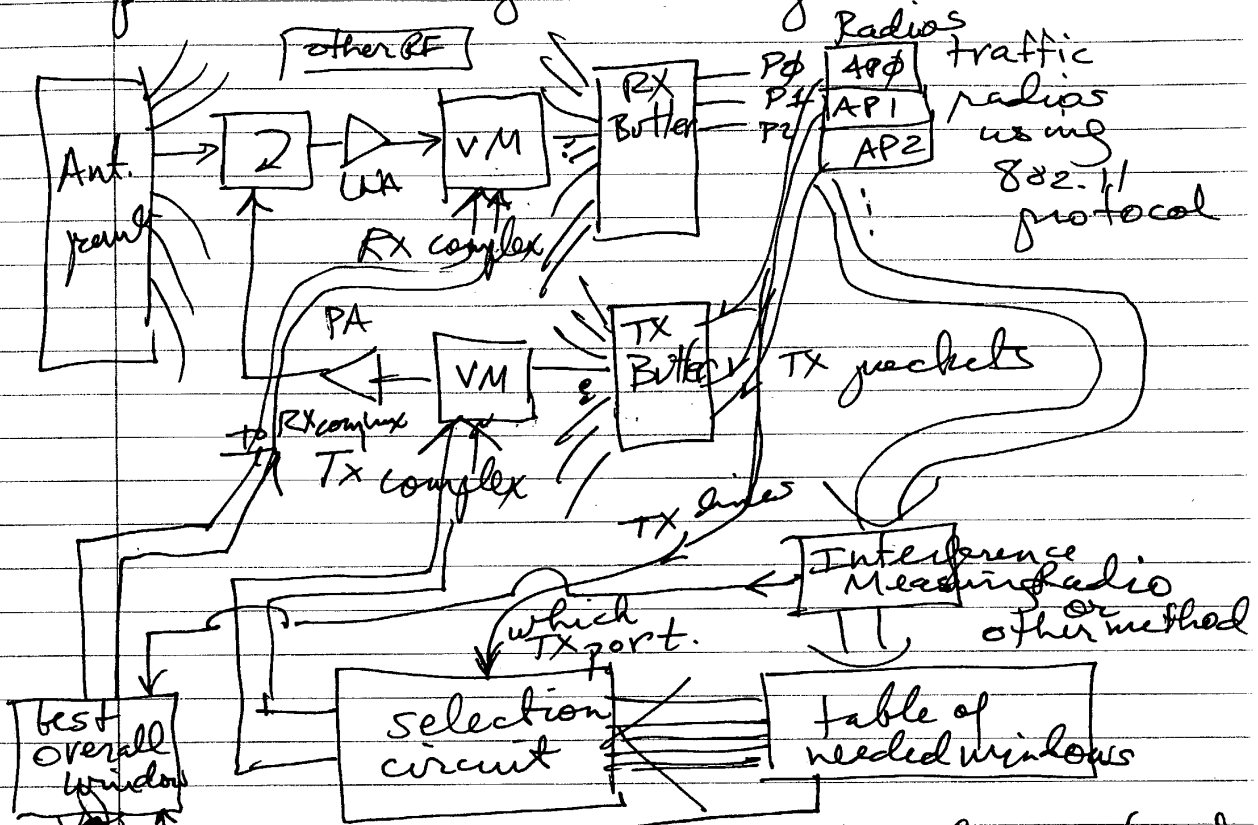 other RF
Radios
traffic
radios
using
802.11
protocol
Ant.
2
LNA
VM
RX
Butler
PØ
P1
P2
APØ
API
AP2
RX complex
PA
VM
TX
Butler
TX packets
RX complex
TX complex
TX lines
Interference
Measuring Radio
or
other method
which
TX port.
best
overall
window
selection
circuit
table of
needed windows